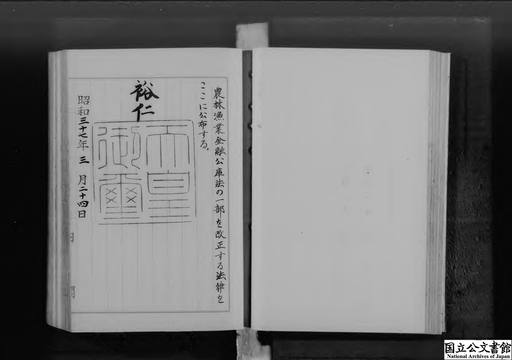 農林漁業金融公庫法の一部を改正する法律を
ここに公布する。
裕仁
天皇御璽
昭和三十七年三月二十四日
国立公文書館
National Archives of Japan